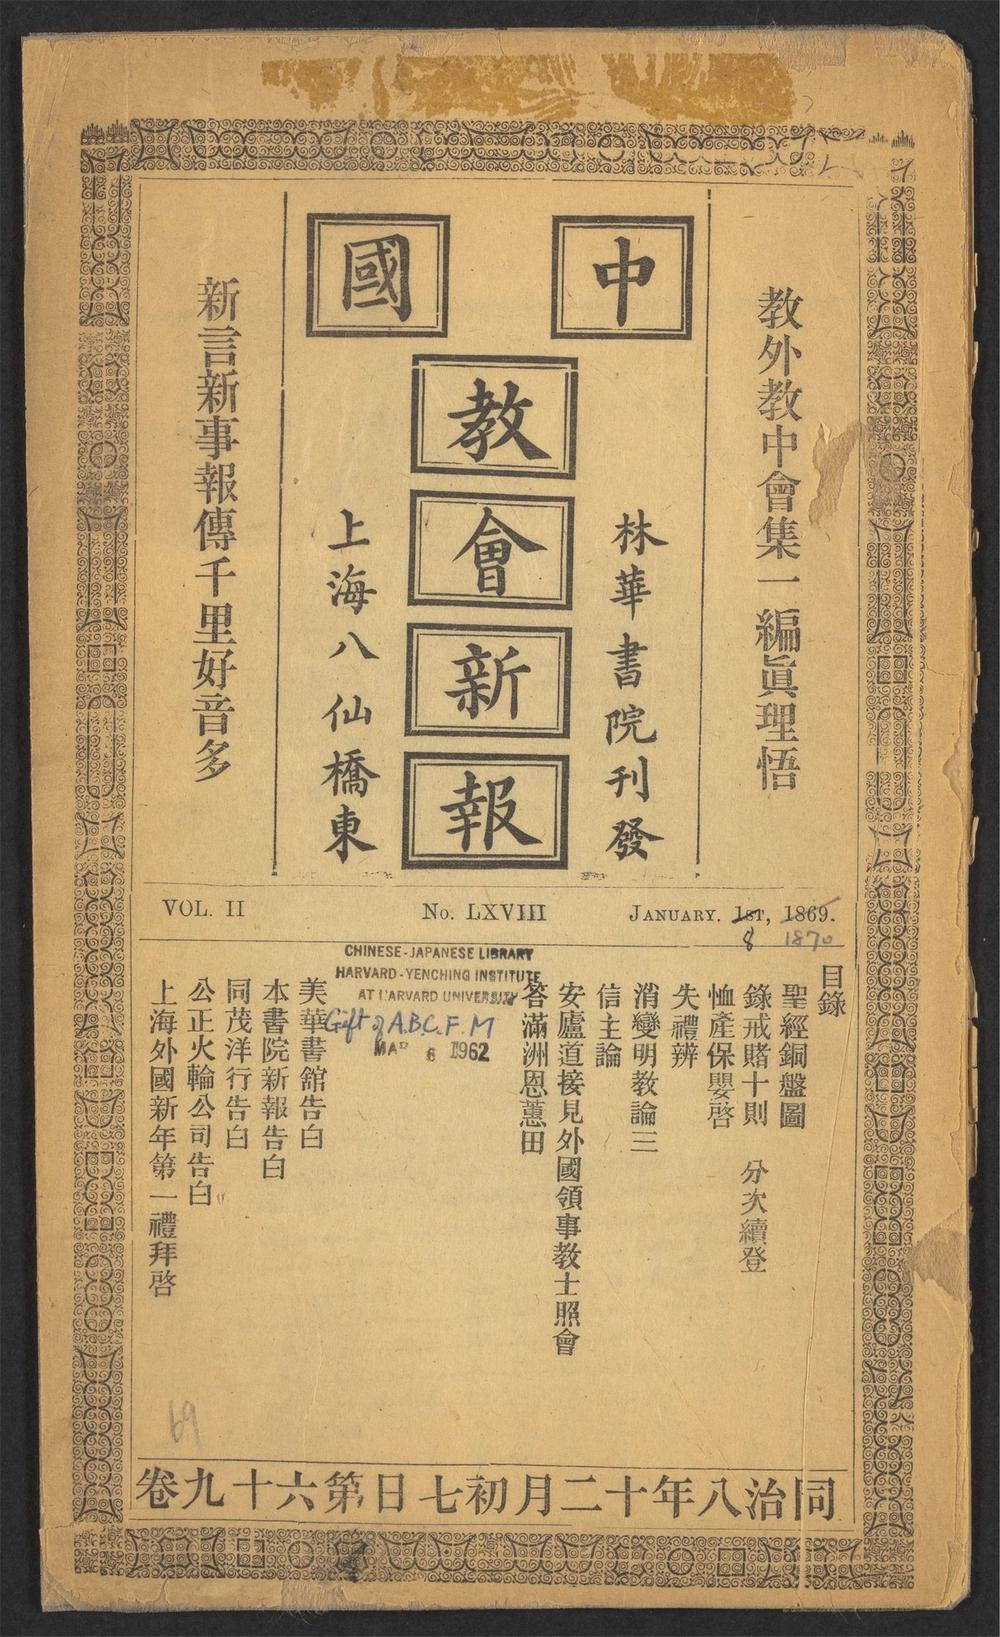 教外教中會集一編眞理悟
中國
教會新報
林華書院刊發
上海八仙橋東
新言新事報傳千里好音多
VOL. II No. LXVIII JANUARY. 1ST, 1869.
8 1870
CHINESE-JAPANESE LIBRARY
HARVARD-YENCHING INSTITUTE
AT HARVARD UNIVERSITY
Gift of A.B.C.F.M
MAR 6 1962
目錄
聖經銅盤圖
錄戒賭十則 分次續登
恤產保嬰啓
失禮辨
消變明教論三
信主論
安廬道接見外國領事教士照會
答滿洲恩蕙田
美華書館告白
本書院新報告白
同茂洋行告白
公正火輪公司告白
上海外國新年第一禮拜啓
69
同治八年十二月初七日第六十九卷